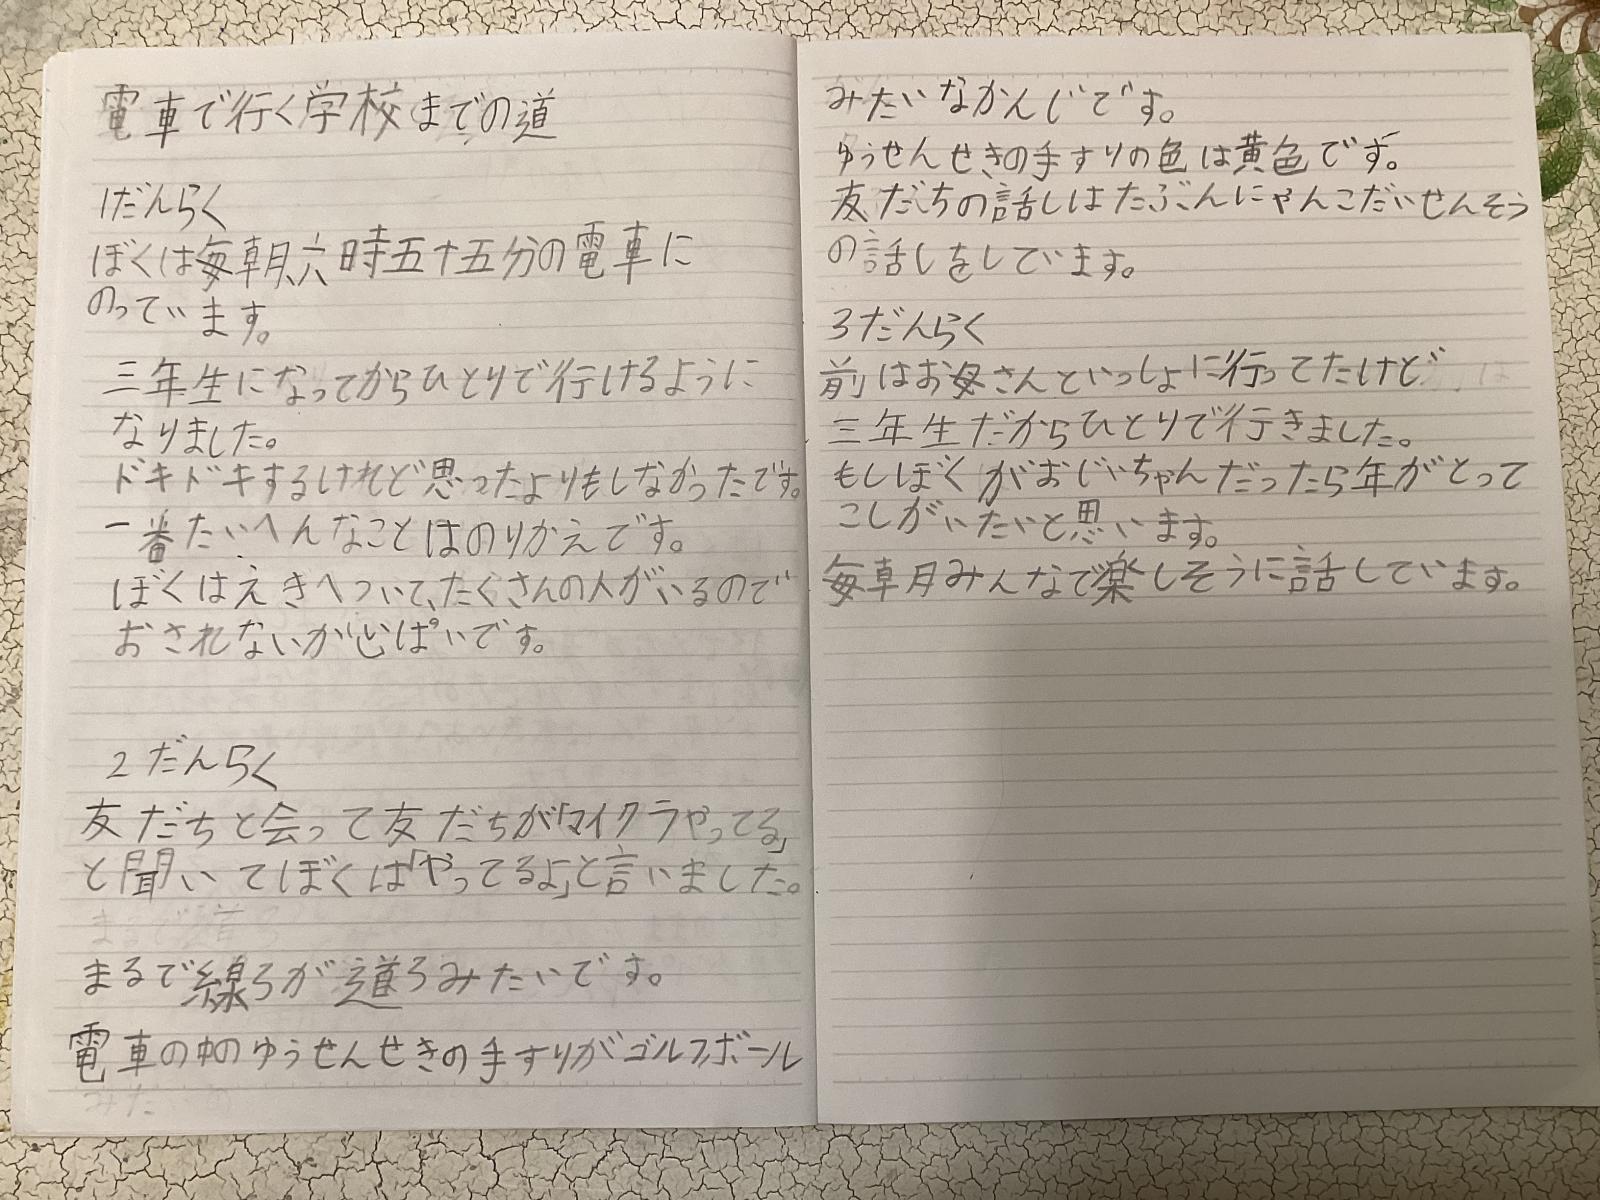 電車で行く学校までの道
1だんらく
ぼくは毎朝、六時五十五分の電車に
のっています。
三年生になってからひとりで行けるように
なりました。
ドキドキするけれど思ったよりもしなかったです。
一番たいへんなことはのりかえです。
ぼくはえきへついて、たくさんの人がいるので
おされないか心ぱいです。
2だんらく
友だちと会って友だちが「マイクラやってる」
と聞いてぼくは「やってるよ」と言いました。
まるで線ろが道ろみたいです。
電車の中のゆうせんせきの手すりがゴルフボール
みたいなかんじです。
ゆうせんせきの手すりの色は黄色です。
友だちの話しはたぶんにゃんこだいせんそう
の話しをしています。
3だんらく
前はお母さんといっしょに行ってたけど
三年生だからひとりで行きました。
もしぼくがおじいちゃんだったら年がとって
こしがいたいと思います。
毎朝みんなで楽しそうに話しています。